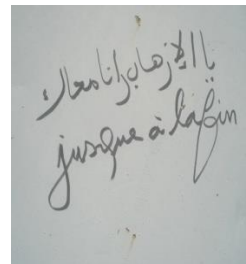 يا الإرهاب انا معاك
jusque à la fin